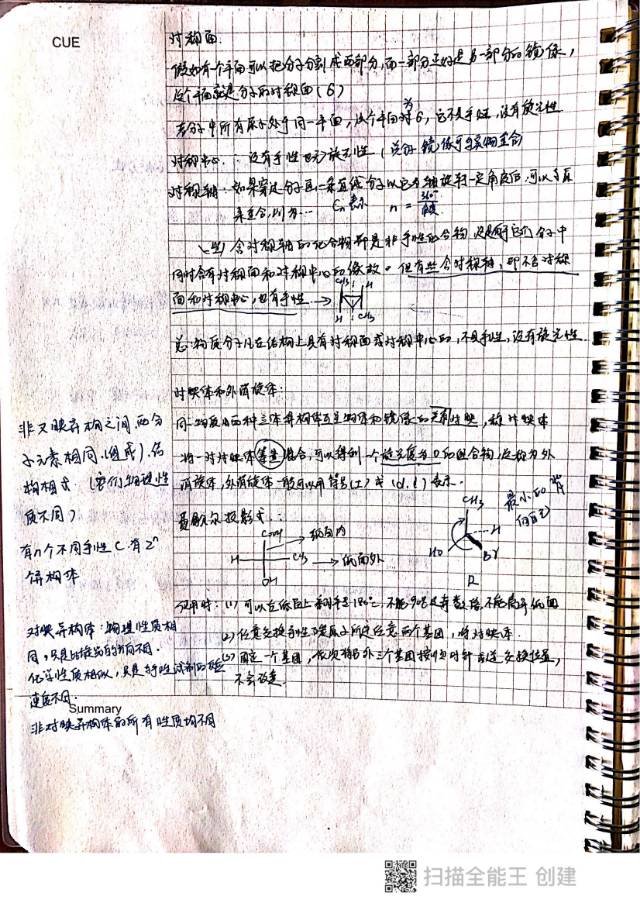 CUE
对称面.
假如有一个平面可以把分子分割成两部分,而一部分正好是另一部分的镜像,
这个平面就是分子的对称面(σ)
若分子中所有原子处于同一平面,这个平面为σ,它不是手性,没有旋光性
对称中心. ∴没有手性 无旋光性(
对称轴:如果穿过分子画一条直线,分子以它为轴旋转一定角度后,可以
重合,
Cn 表示 n = 360°
含对称轴的化合物都是非手性化合物, 分子中
同时含有对称面和对称中心的缘故。但有些含对称轴,即不含对称
面和对称中心,也有手性 →
CH3 H
H CH3
总:物质分子凡在结构上具有对称面或对称中心的,不具手性,没有旋光性.
对映体和外消旋体:
同一物质的两种立体异构体互呈物体和镜像的 称对映体
将一对对映体等量混合,可以得到一个旋光度为0的组合物,这称为外
消旋体,外消旋体一般可以用符号(±)或(d,l)表示.
费歇尔投影式:
COOH → 纸面内
H CH3 → 纸面外
OH
CH3
H
HO Br
R
最小的背
向自己
使用时:(1)可以在纸面上 180°,不能90°或奇数倍 不能离开纸面
(2)任意交换手性碳原子所连任意两个基团,将对映体.
(3)固定一个基团,依次将另外三个基团按顺时针 交换位置,
不会改变.
非对映异构之间 两分
子元素相同(组成),结
构相式 (它们物理性
质不同)
有n个不同手性C有2ⁿ
个异构体
对映异构体:物理性质相
同,只是比旋光的方向不同.
化学性质相似,只是手性试剂
速度不同.
Summary
非对映异构体的所有性质均不同
扫描全能王 创建